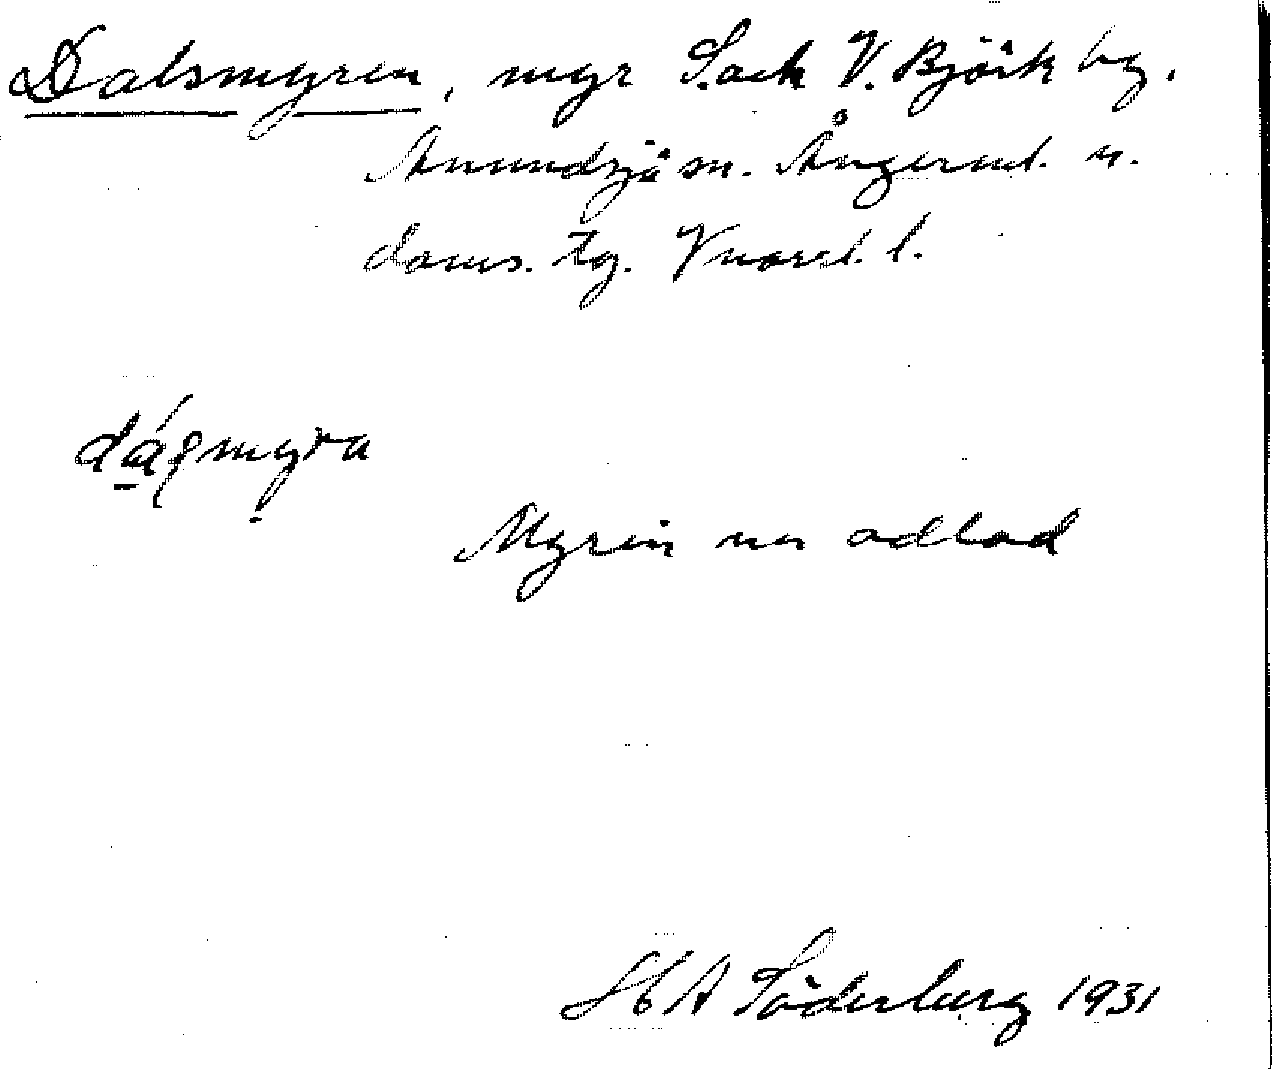 Dalsmyren, myr S. och V. Björk by.
Anundsjö sn. Ångerml. n.
doms. tg. V norrl. l.
Myren nu odlad
H A Söderberg 1931